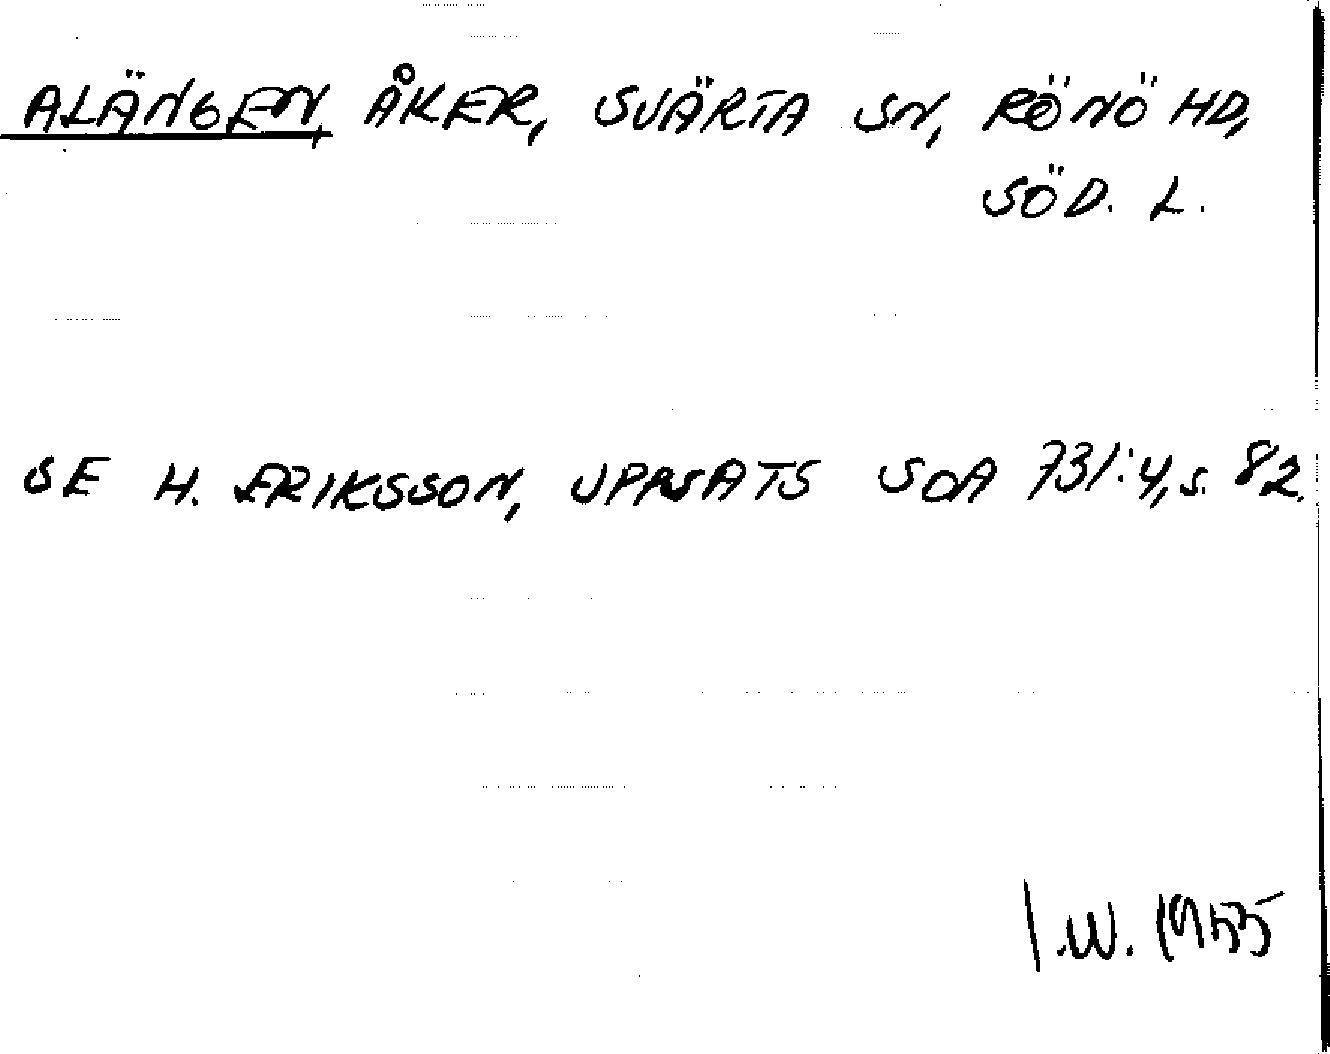 ALÄNGEN, ÅKER, SVÄRTA SN, RÖNÖ HD,
SÖD. L.
SE H. ERIKSSON, UPPSATS SOA 731:4, S. 82.
I.W. 1955